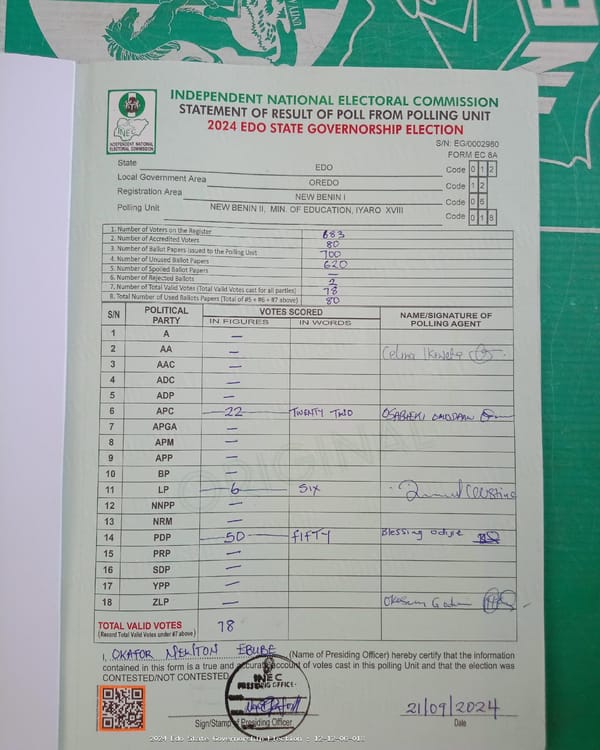 INDEPENDENT NATIONAL ELECTORAL COMMISSION
STATEMENT OF RESULT OF POLL FROM POLLING UNIT
2024 EDO STATE GOVERNORSHIP ELECTION
INEC
INDEPENDENT NATIONAL
ELECTORAL COMMISSION
S/N: EG/0002980
FORM EC 8A
State EDO Code 0 1 2
Local Government Area OREDO Code 1 2
Registration Area NEW BENIN I Code 0 6
Polling Unit NEW BENIN II, MIN. OF EDUCATION, IYARO XVIII Code 0 1 8
1. Number of Voters on the Register 683
2. Number of Accredited Voters 80
3. Number of Ballot Papers Issued to the Polling Unit 700
4. Number of Unused Ballot Papers 620
5. Number of Spoiled Ballot Papers —
6. Number of Rejected Ballots 2
7. Number of Total Valid Votes (Total Valid Votes cast for all parties) 78
8. Total Number of Used Ballots Papers (Total of #5 + #6 + #7 above) 80
S/N POLITICAL PARTY VOTES SCORED NAME/SIGNATURE OF POLLING AGENT
IN FIGURES IN WORDS
1 A —
2 AA —
3 AAC —
4 ADC —
5 ADP —
6 APC 22 TWENTY TWO
7 APGA —
8 APM —
9 APP —
10 BP —
11 LP 6 SIX
12 NNPP —
13 NRM —
14 PDP 50 FIFTY Blessing
15 PRP —
16 SDP —
17 YPP —
18 ZLP —
ORIGINAL
TOTAL VALID VOTES 78
(Record Total Valid Votes under #7 above)
I, OKAFOR EBUBE (Name of Presiding Officer) hereby certify that the information
contained in this form is a true and accurate account of votes cast in this polling Unit and that the election was
CONTESTED/NOT CONTESTED.
INEC
PRESIDING OFFICER
21/09/2024
Sign/Stamp of Presiding Officer Date
2024 Edo State Governorship Election : 12-12-06-018